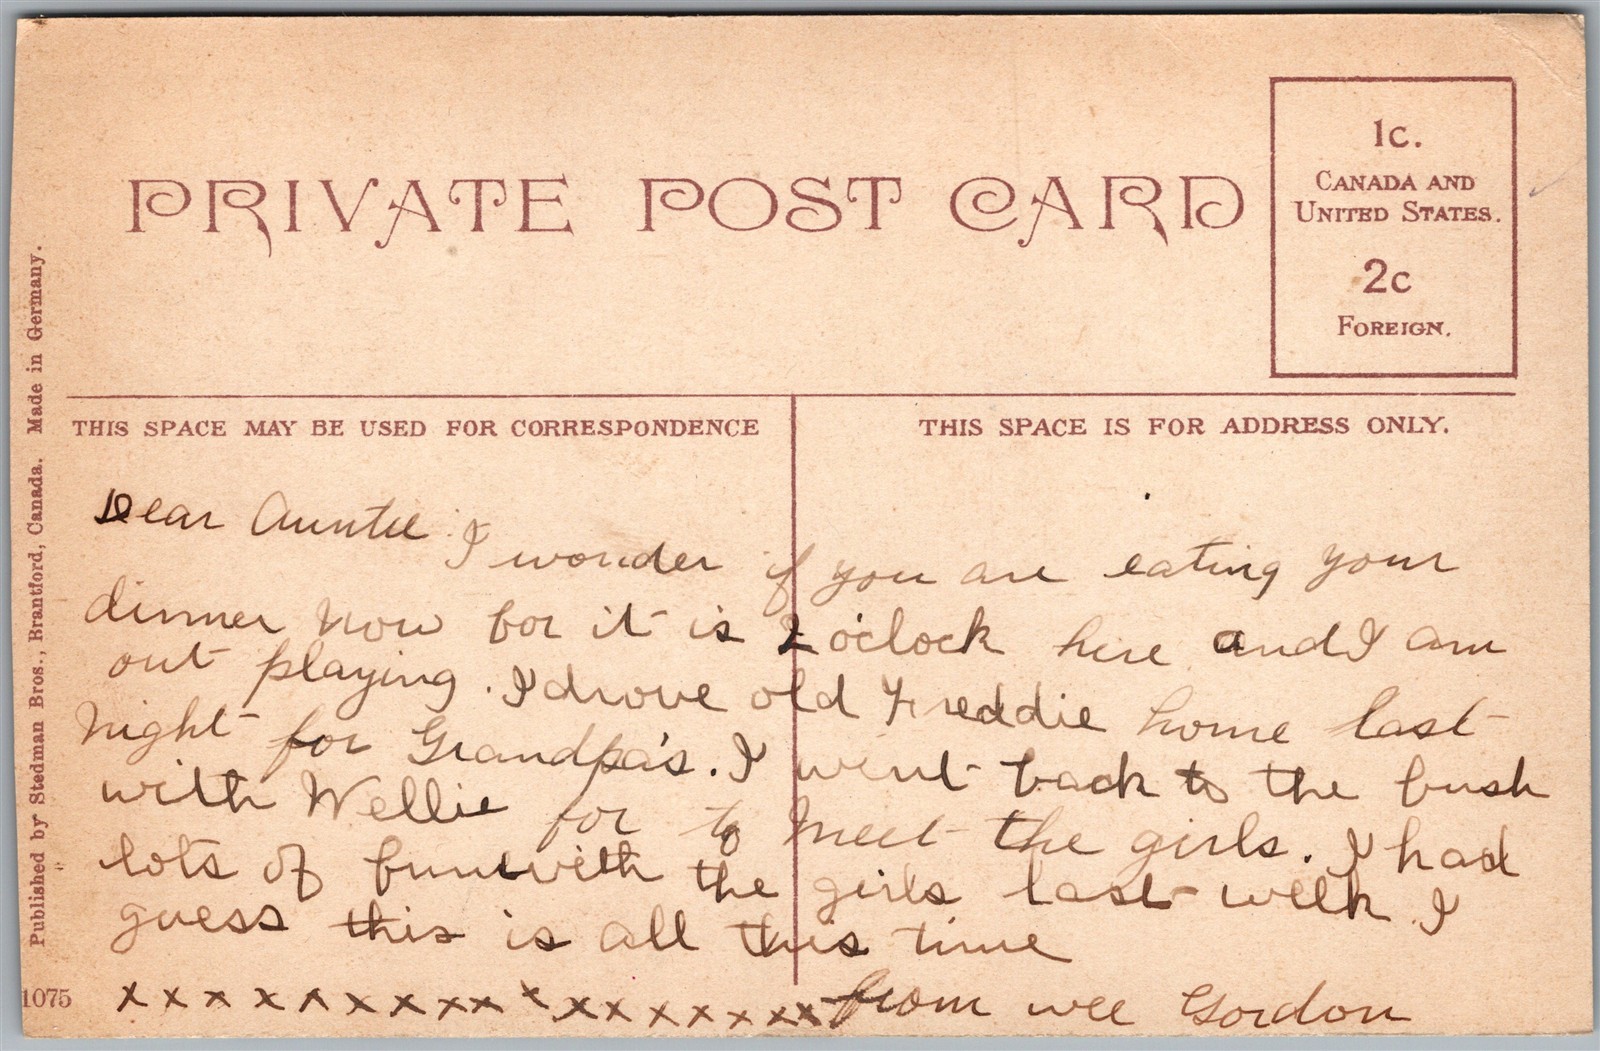 PRIVATE POST CARD
1c.
CANADA AND
UNITED STATES.
2c
FOREIGN.
THIS SPACE MAY BE USED FOR CORRESPONDENCE
THIS SPACE IS FOR ADDRESS ONLY.
Dear Auntie
I wonder if you are eating your
dinner now for it is 2 o'clock here and I am
out playing. I drove old Freddie home last
night for Grandpa's. I went back to the bush
with Wellie for to meet the girls. I had
lots of fun with the girls last week I
guess this is all this time
x x x x x x x x x x x x x x x x x x from wee Gordon
Published by Stedman Bros., Brantford, Canada. Made in Germany.
1075